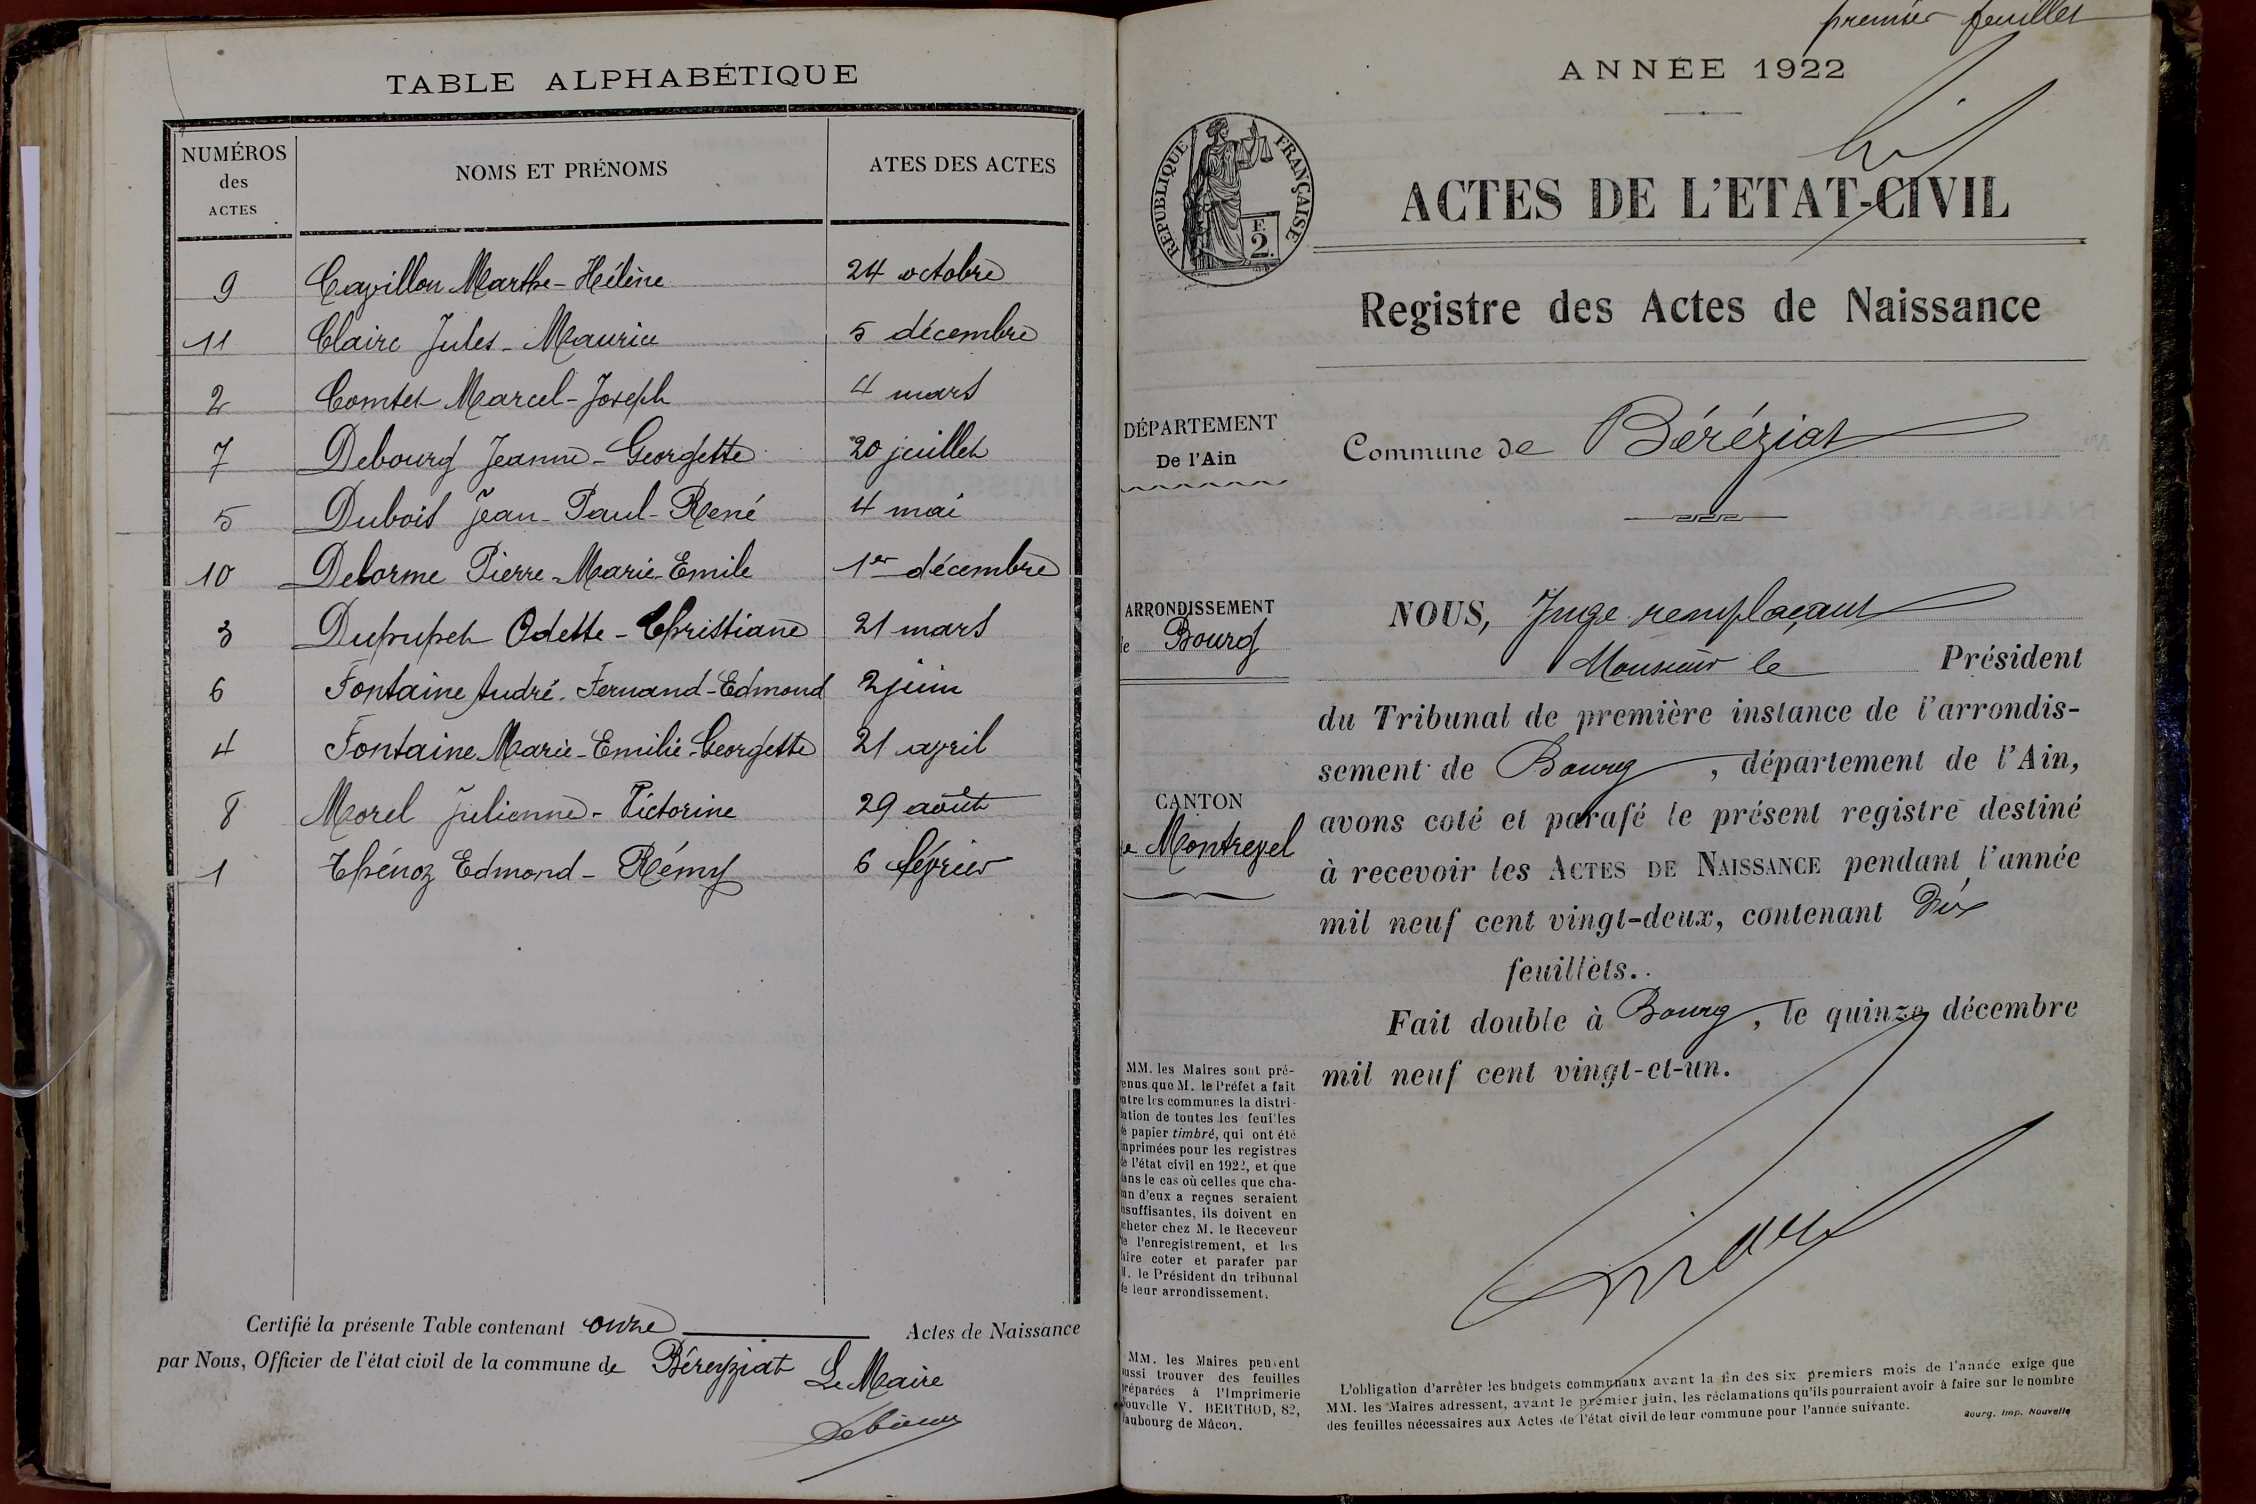 TABLE ALPHABÉTIQUE
NUMÉROS des ACTES
NOMS ET PRÉNOMS
ATES DES ACTES
9 Cavillon Marthe-Hélène 24 octobre
11 Claire Jules-Maurice 5 décembre
2 Comtet Marcel-Joseph 4 mars
7 Debourg Jeanne-Georgette 20 juillet
5 Dubois Jean-Paul-René 4 mai
10 Delorme Pierre-Marie-Emile 1er décembre
3 Dupupet Odette-Christiane 21 mars
6 Fontaine André-Fernand-Edmond 2 juin
4 Fontaine Marie-Emilie-Georgette 21 avril
8 Morel Julienne-Victorine 29 août
1 Thénoz Edmond-Rémy 6 février
Certifié la présente Table contenant onze Actes de Naissance
par Nous, Officier de l'état civil de la commune de Béreyziat Le Maire
premier feuillet
ANNÉE 1922
RÉPUBLIQUE FRANÇAISE
F.
2.
ACTES DE L'ETAT-CIVIL
Registre des Actes de Naissance
DÉPARTEMENT
De l'Ain
Commune de Béréziat
ARRONDISSEMENT
de Bourg
CANTON
de Montrevel
NOUS, Juge remplaçant
Monsieur le Président
du Tribunal de première instance de l'arrondis-
sement de Bourg, département de l'Ain,
avons coté et parafé le présent registre destiné
à recevoir les ACTES DE NAISSANCE pendant l'année
mil neuf cent vingt-deux, contenant Dix
feuillets.
Fait double à Bourg, le quinze décembre
mil neuf cent vingt-et-un.
MM. les Maires sont pré-
enus que M. le Préfet a fait
ntre les communes la distri-
ution de toutes les feuilles
de papier timbré, qui ont été
imprimées pour les registres
de l'état civil en 1922, et que
dans le cas où celles que cha-
un d'eux a reçues seraient
nsuffisantes, ils doivent en
cheter chez M. le Receveur
de l'enregistrement, et les
faire coter et parafer par
M. le Président du tribunal
de leur arrondissement.
MM. les Maires peuvent
aussi trouver des feuilles
préparées à l'Imprimerie
Nouvelle V. BERTHOD, 82,
faubourg de Mâcon.
L'obligation d'arrêter les budgets communaux avant la fin des six premiers mois de l'année exige que
MM. les Maires adressent, avant le premier juin, les réclamations qu'ils pourraient avoir à faire sur le nombre
des feuilles nécessaires aux Actes de l'état civil de leur commune pour l'année suivante.
Bourg, Imp. Nouvelle